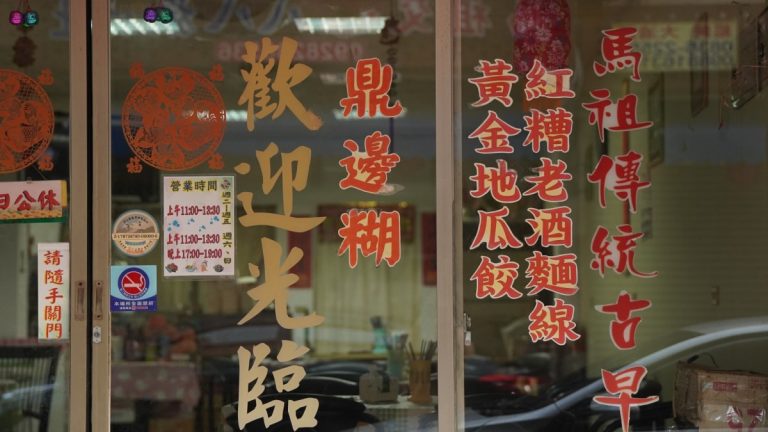 馬祖傳統古早
紅糟老酒麵線
黃金地瓜餃
鼎邊糊
歡迎光臨
營業時間
週二~週五
上午11:00-13:30
週六、日
上午11:00-13:30
晚上17:00-19:00
日公休
請隨手關門